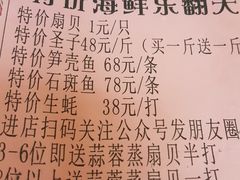 特价海鲜乐翻天
特价扇贝 1元/只
特价圣子48元/斤（买一斤送一斤
特价笋壳鱼 68元/条
特价石斑鱼 78元/条
特价生蚝 38元/打
进店扫码关注公众号发朋友圈
3-6位即送蒜蓉蒸扇贝半打
位以上送蒜蓉蒸扇贝一